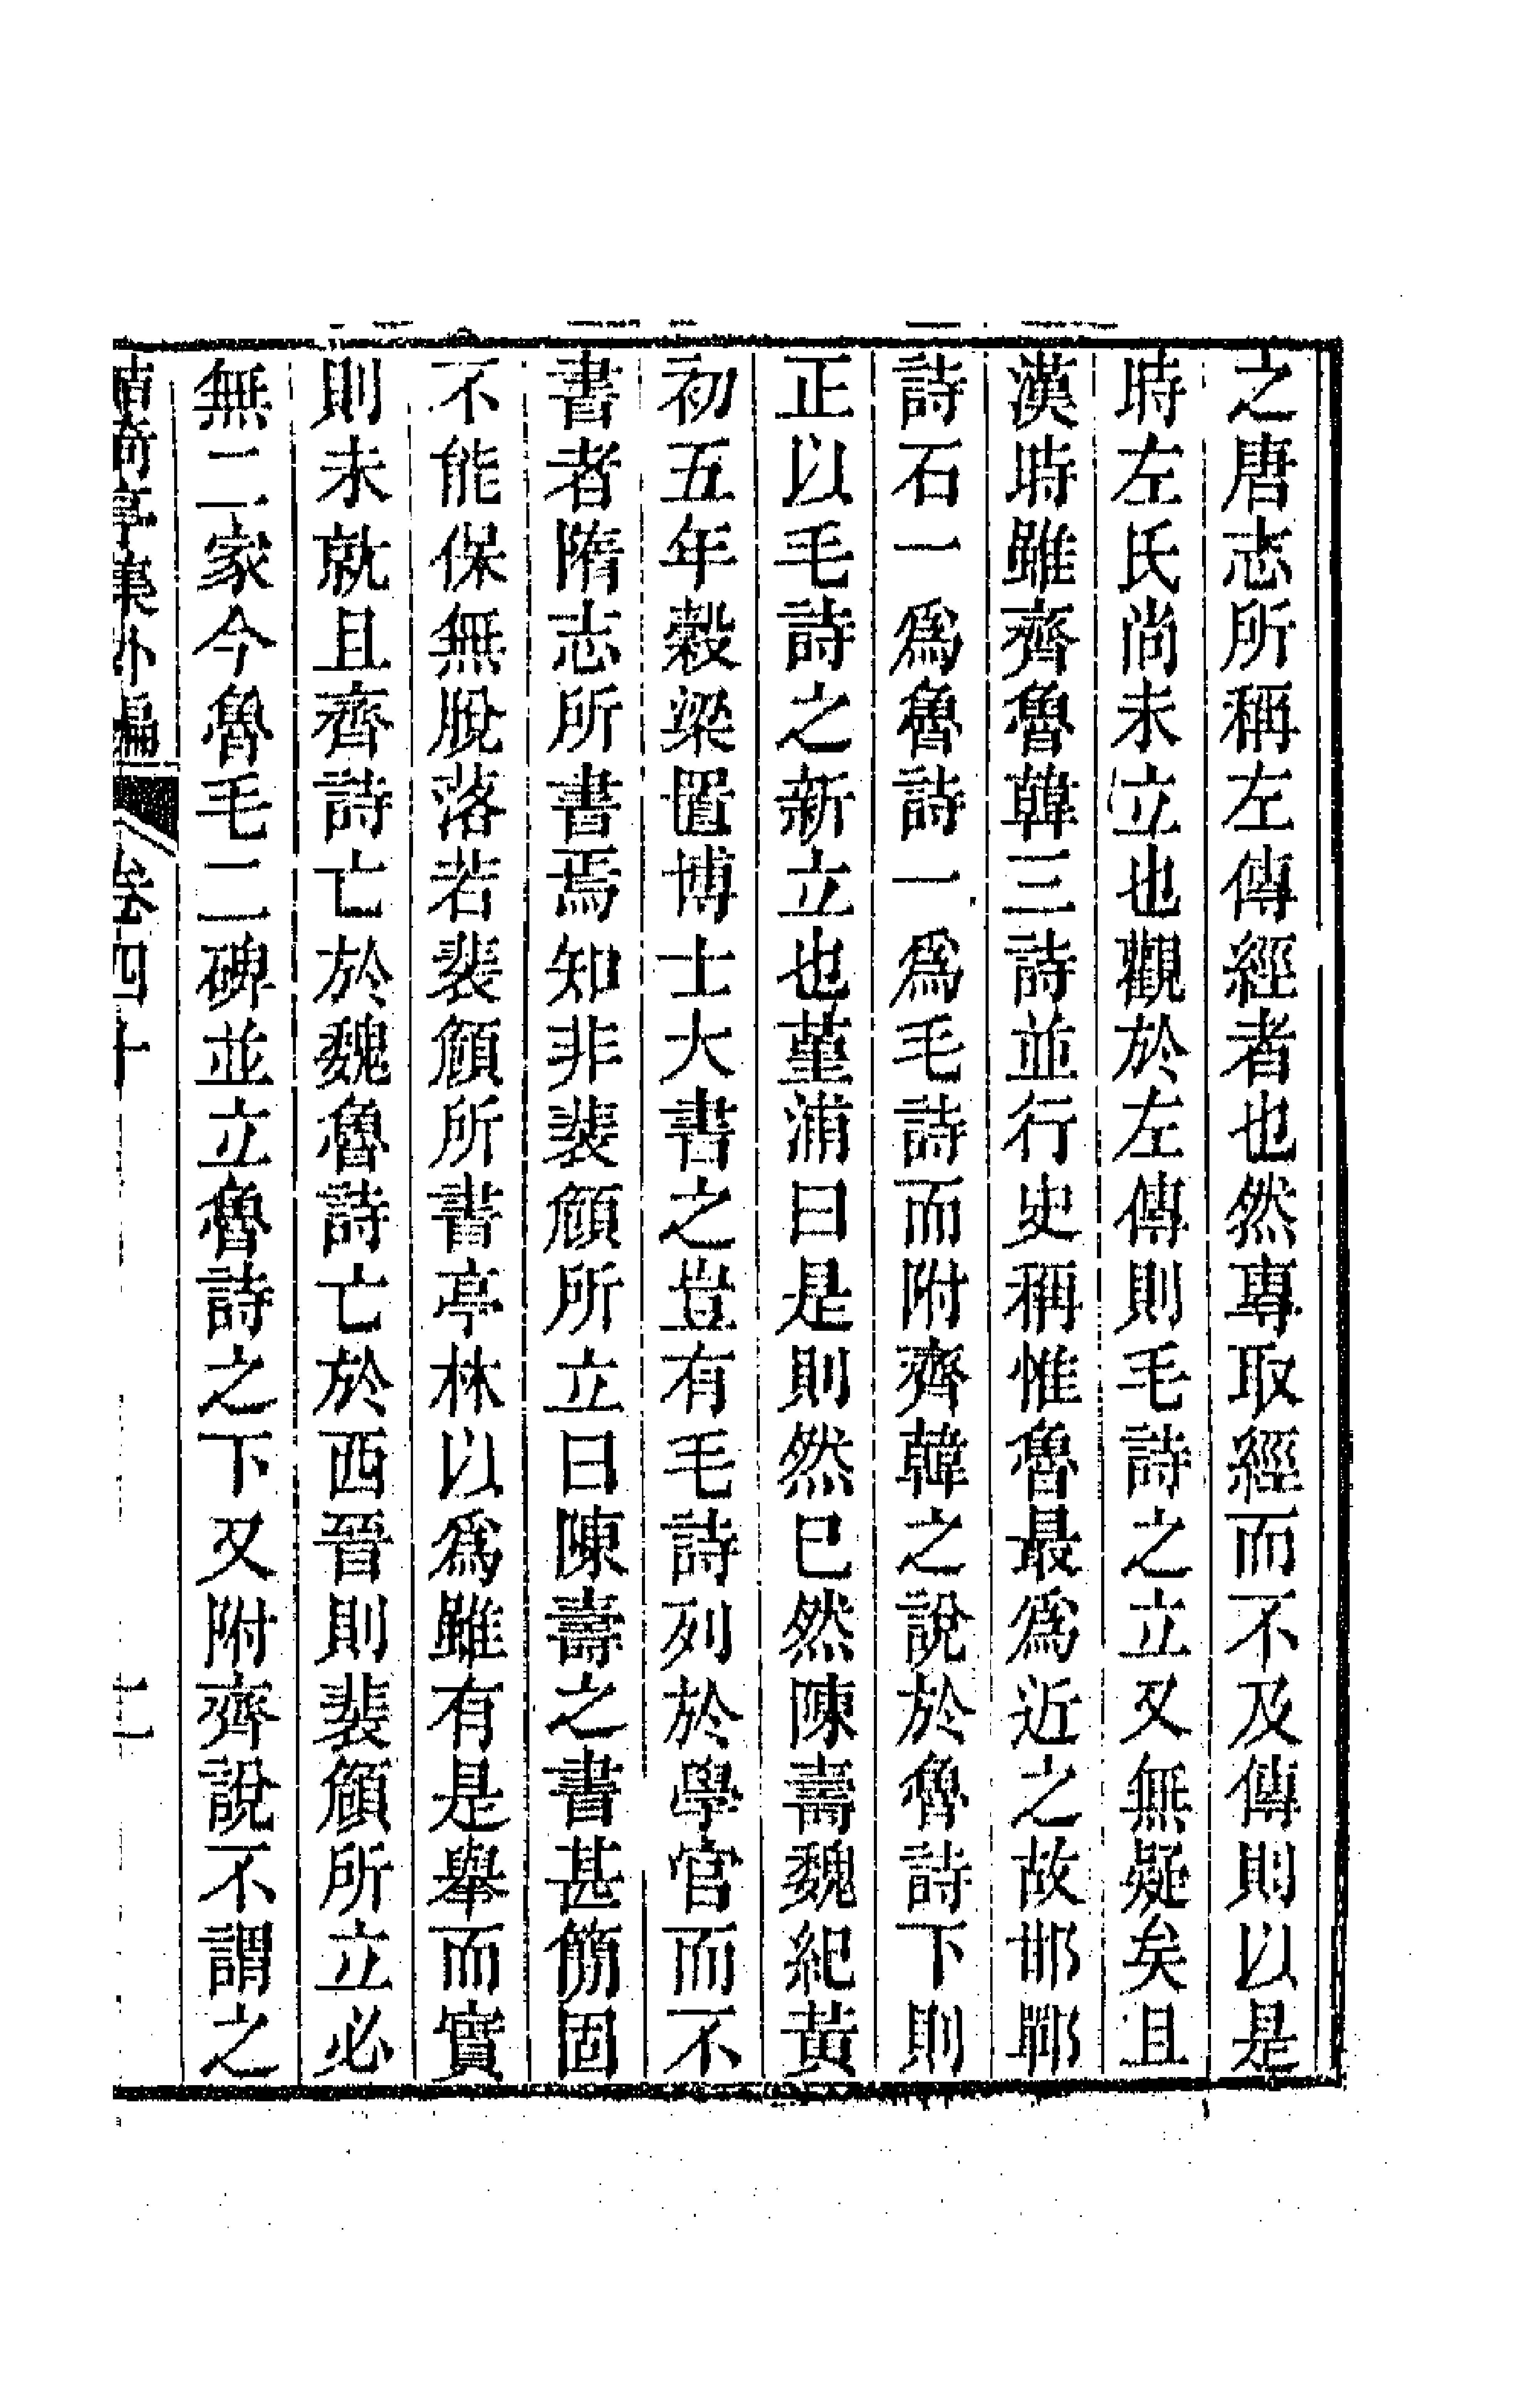 之唐志所稱左傳經者也然專取經而不及傳則以是
時左氏尚未立也觀於左傳則毛詩之立又無疑矣且
漢時雖齊魯韓三詩並行史稱惟魯最爲近之故邯鄲
詩石一爲魯詩一爲毛詩而附齊韓之說於魯詩下則
正以毛詩之新立也菫浦曰是則然已然陳壽魏紀黃
初五年穀梁置博士大書之豈有毛詩列於學官而不
書者隋志所書焉知非裴頠所立曰陳壽之書甚簡固
不能保無脫落若裴頠所書亭林以爲雖有是舉而實
則未就且齊詩亡於魏魯詩亡於西晉則裴頠所立必
無二家今魯毛二碑並立魯詩之下又附齊說不謂之
鮚埼亭集外編 卷四十 二